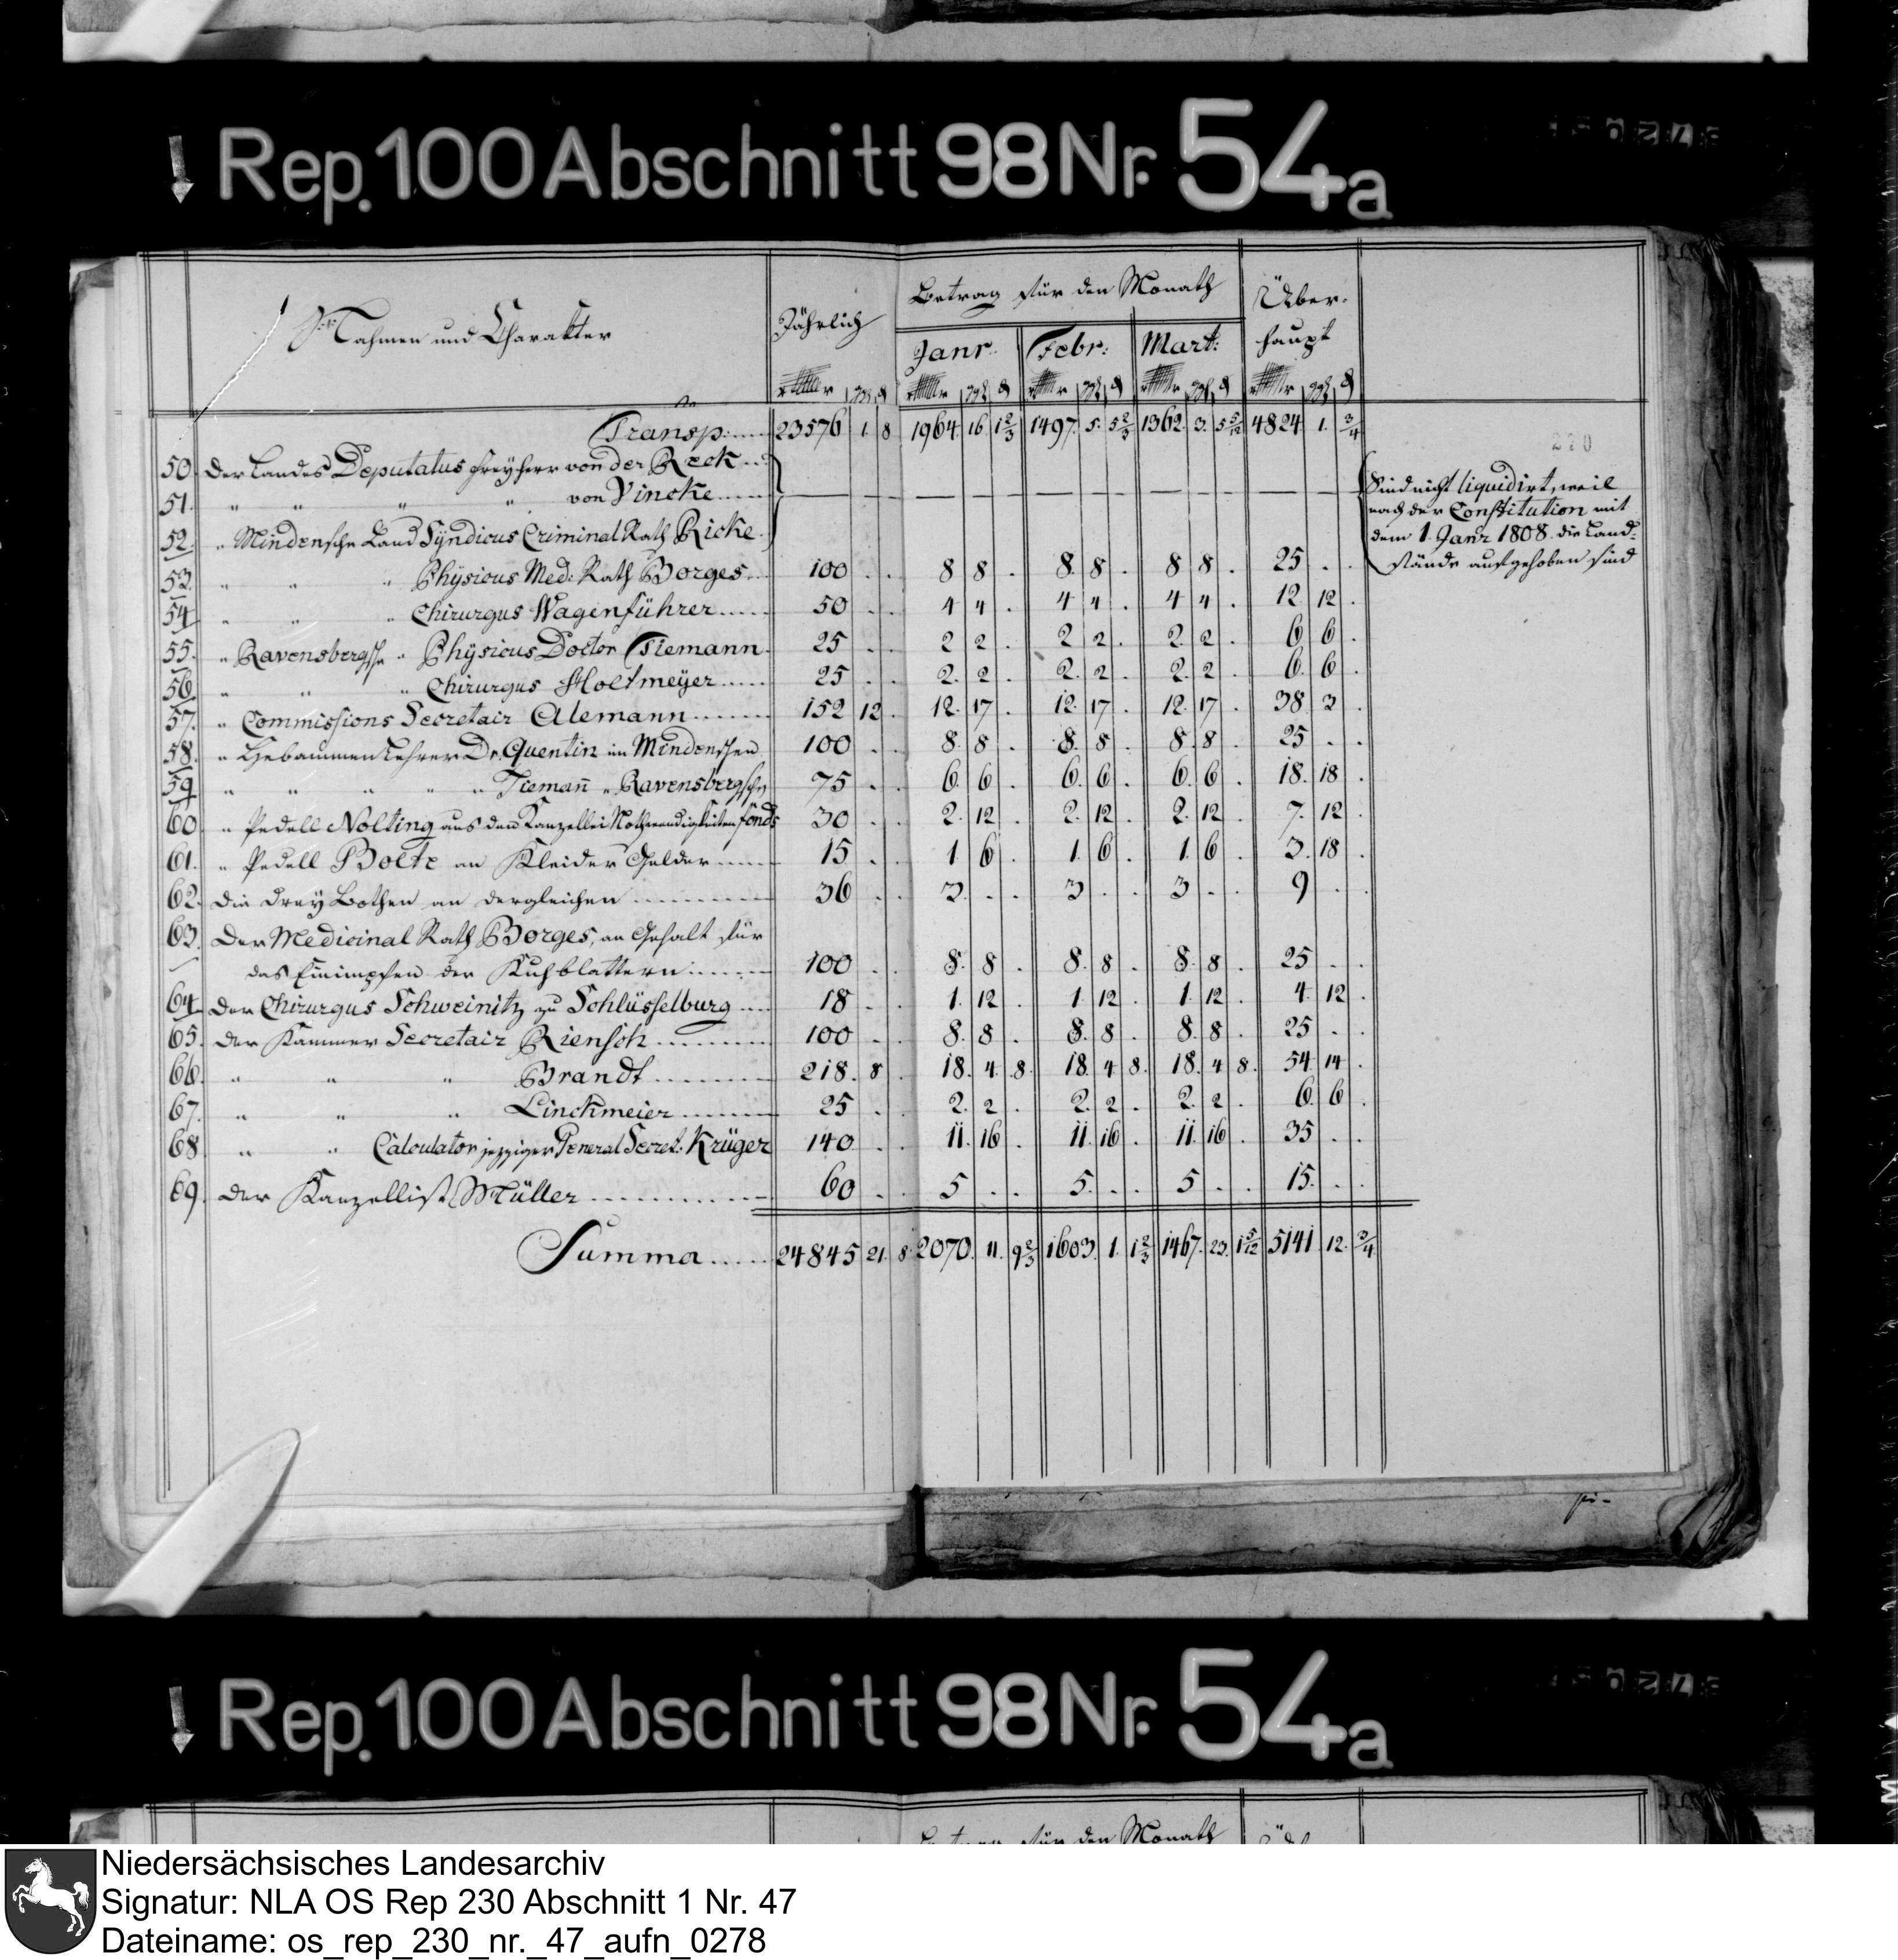 Rep. 100 Abschnitt 98 Nr. 54a
Nahmen und Charakter
Jährlich
Betrag für den Monath
Janr. Febr: Mart:
Über-
haupt
Transp: 23576 1. 8 1964. 16. 1 2/3 1497. 5. 5 2/3 1362. 3. 5 5/12 4824 1. 3/4
220
50. Der Landes Deputatus Freyherr von der Reck
51. " " " " von Vincke
52. " Mindensche Land Syndicus Criminal Rath Ricke
Sind nicht liquidirt, weil
nach der Constitution mit
dem 1. Janr 1808. die Land-
stände aufgehoben sind
53. " " " Physicus Med: Rath Borges 100 . . 8 8 . 8. 8 . 8 8 . 25 . .
54 " " " Chirurgus Wagenführer 50 . . 4 4 . 4 4 . 4 4 . 12 12 .
55. " Ravensbergsche " Physicus Doctor Tiemann 25 . . 2 2 . 2 2 . 2. 2 . 6 6 .
56. " " " Chirurgus Holtmeyer 25 . . 2. 2 . 2. 2 . 2. 2 . 6. 6 .
57. " Commissions Secretair Alemann 152 12 . 12. 17 . 12. 17 . 12. 17 . 38. 3 .
58. " Hebammen Lehrer Dr. Quentin im Mindenschen 100 . . 8. 8 . 8. 8 . 8. 8 . 25 . .
59 " " " " " Tieman̄ " Ravensbergschen 75 . . 6. 6 . 6. 6 . 6. 6 . 18. 18 .
60. " Pedell Nolting aus dem Kanzellei Nothwendigkeiten fonds 30 . . 2. 12 . 2. 12 . 2. 12 . 7. 12 .
61. " Pedell Bolte an Kleider Gelder 15 . . 1. 6 . 1. 6 . 1. 6 . 3. 18 .
62. Die drey Bothen an dergleichen 36 . . 3. . . 3 . . 3 . . 9 . .
63. Der Medicinal Rath Borges, an Gehalt für
das Einimpfen der Kuhblattern 100 . . 8. 8 . 8. 8 . 8. 8 . 25 . .
64 Der Chirurgus Schweinitz zu Schlüsselburg 18 . . 1. 12 . 1. 12 . 1. 12 . 4. 12 .
65. Der Kammer Secretair Riensch 100 . . 8. 8 . 8. 8 . 8. 8 . 25 . .
66. " " " Brandt 218. 8 . 18. 4. 8. 18. 4 8. 18. 4 8. 54. 14 .
67. " " " Linckmeier 25 . . 2. 2 . 2. 2 . 2. 2 . 6. 6 .
68 " " Calculator jezziger General Secret: Krüger 140 . . 11. 16 . 11. 16 . 11. 16 . 35 . .
69. Der Kanzellist Müller 60 . . 5 . . 5. . . 5 . . 15. . .
Summa 24845 21. 8 2070. 11. 9 2/3 1603. 1. 1 2/3 1467. 23. 1 5/12 5141 12. 3/4
Rep. 100 Abschnitt 98 Nr. 54a
Niedersächsisches Landesarchiv
Signatur: NLA OS Rep 230 Abschnitt 1 Nr. 47
Dateiname: os_rep_230_nr._47_aufn_0278